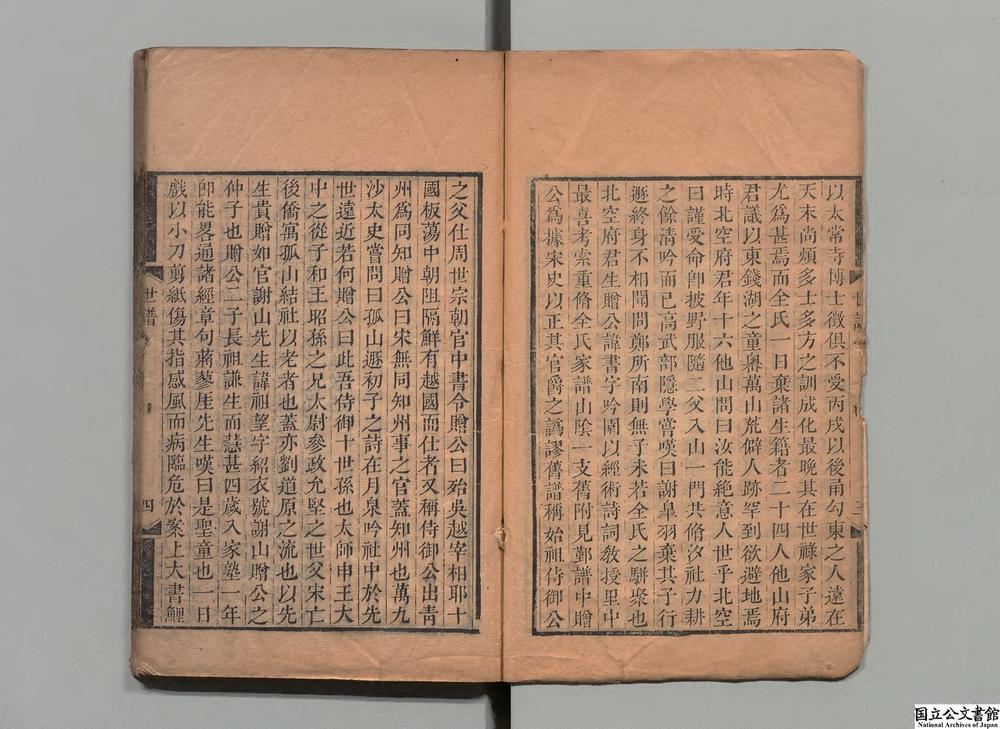 以太常寺博士徵俱不受丙戌以後甬勾東之人遠在
天末尚頑多士多方之訓成化最晚其在世祿家子弟
尤為甚焉而全氏一日棄諸生籍者二十四人他山府
君議以東錢湖之童嶴萬山荒僻人跡罕到欲避地焉
時北空府君年十六他山問曰汝能絶意人世乎北空
曰謹受命卽披野服隨二父入山一門共脩汐社力耕
之餘清吟而已高武部隱學嘗嘆曰謝臯羽棄其子行
遯終身不相聞問鄭所南則無子未若全氏之駢聚也
北空府君生贈公諱書字吟園以經術詩詞教授里中
最喜考索重脩全氏家譜山陰一支舊附見鄞譜中贈
公爲據宋史以正其官爵之譌謬舊譜稱始祖侍御公
世譜
三
之父仕周世宗朝官中書令贈公曰殆吳越宰相耶十
國板蕩中朝阻隔鮮有越國而仕者又稱侍御公出青
州爲同知贈公曰宋無同知州事之官蓋知州也萬九
沙太史嘗問曰孤山遯初子之詩在月泉吟社中於先
世遠近若何贈公曰此吾侍御十世孫也太師申王大
中之從子和王昭孫之兄太尉參政允堅之世父宋亡
後僑寓孤山結社以老者也蓋亦劉道原之流也以先
生貴贈如官謝山先生諱祖望字紹衣號謝山贈公之
仲子也贈公二子長祖謙生而慧甚四歲入家塾一年
卽能畧通諸經章句蔣蓼厓先生嘆曰是聖童也一日
戲以小刀剪紙傷其指感風而病臨危於案上大書鯉
世譜
四
国立公文書館
National Archives of Japan